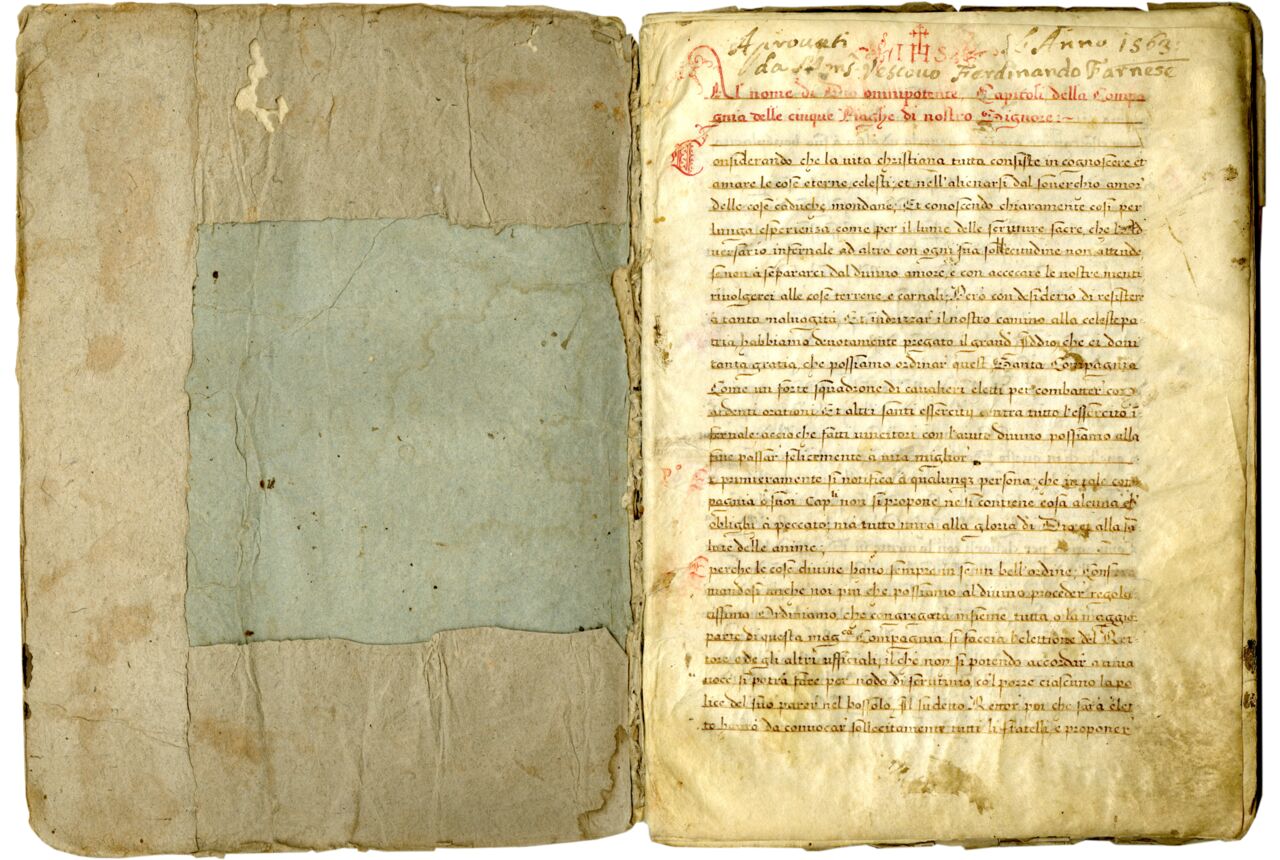 Aprovati IHS L'Anno 1563.
da Mons Vescovo Ferdinando Farnese
Al nome di Dio omnipotente, Capitoli della Compa
gnia delle cinque Piaghe di nostro Signore:-
Considerando che la vita christiana tutta consiste in cognoscere et
amare le cose eterne celesti, et nell'alienarsi dal soverchio amor'
delle cose caduche mondane; Et conoscendo chiaramente cosi per
lunga esperienza come per il lume delle scritture sacre, che l'Ad
versario infernale ad altro con ogni sua sollecitudine non attende
senon à separarci dal divino amore, e con accecare le nostre menti
rivolgerci alle cose terrene e carnali; Però con desiderio di resistere
à tanta malvagità, Et indrizzar il nostro camino alla celeste pa
tria, habbiamo devotamente pregato il grand' Iddio che ci doni
tanta gratia, che possiamo ordinar quest Santa Compagnia
Come un forte squadrone di cavalieri eletti per combatter con
ardenti orationi Et altri santi essercitij contra tutto l'essercito i
fernale accio che fatti vincitori con l'aiuto divino possiamo alla
fine passar felicemente à vita miglior
Et primieramente si notifica à qualunq; persona; che in tale com
pagnia ò suoi Cap.li non si propone, ne si contiene cosa alcuna ch'
oblighi à peccato; mà tutto mira alla gloria di Dio et alla sa
lute delle anime;
E perche le cose divine hano sempre in se un bell'ordine; Confor
mandosi anche noi piu che possiamo al divino proceder regola
tissimo Ordiniamo, che congregata insieme tutta o la maggior
parte di questa mag.ca Compagnia si faccia l'elettione del Ret
tore e de gli altri ufficiali, il che non si potendo accordar a viva
voce si potrà fare per modo di scrutinio, co'l porre ciascuno la po
lice del suo parer nel bossolo. Il sudetto Rettor poi che sarà elet
to haverà da convocar sollecitamente tutti li fratelli e proponer